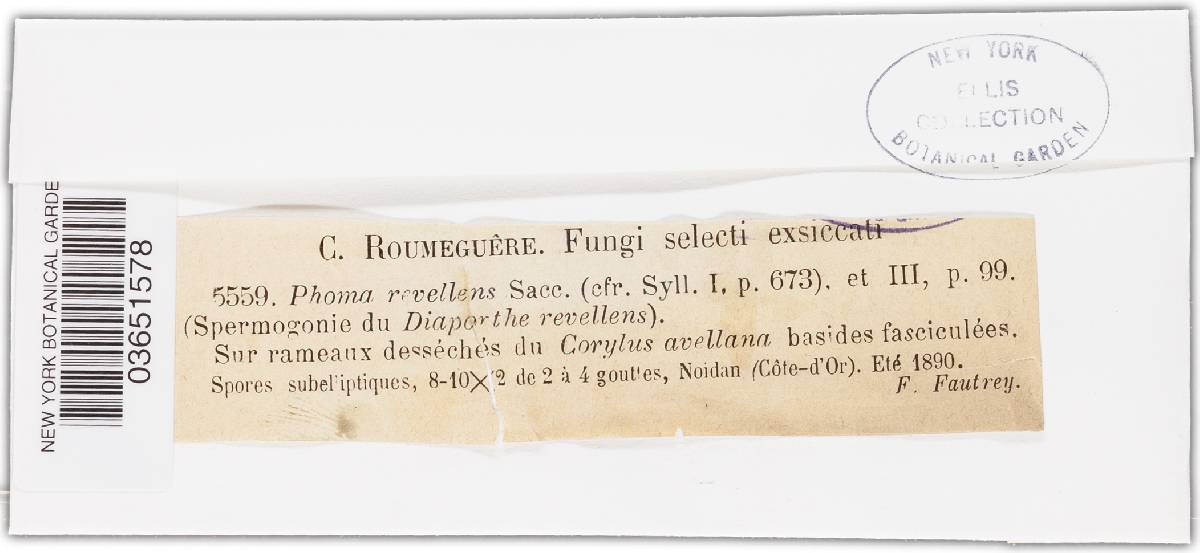 NEW YORK
ELLIS
COLLECTION
BOTANICAL GARDEN
NEW YORK BOTANICAL GARDE
03651578
C. ROUMEGUÊRE. Fungi selecti exsiccati
5559. Phoma revellens Sacc. (cfr. Syll. I, p. 673), et III, p. 99.
(Spermogonie du Diaporthe revellens).
Sur rameaux desséchés du Corylus avellana basides fasciculées.
Spores subelliptiques, 8-10×2 de 2 à 4 gouttes, Noidan (Côte-d'Or). Eté 1890.
F. Fautrey.